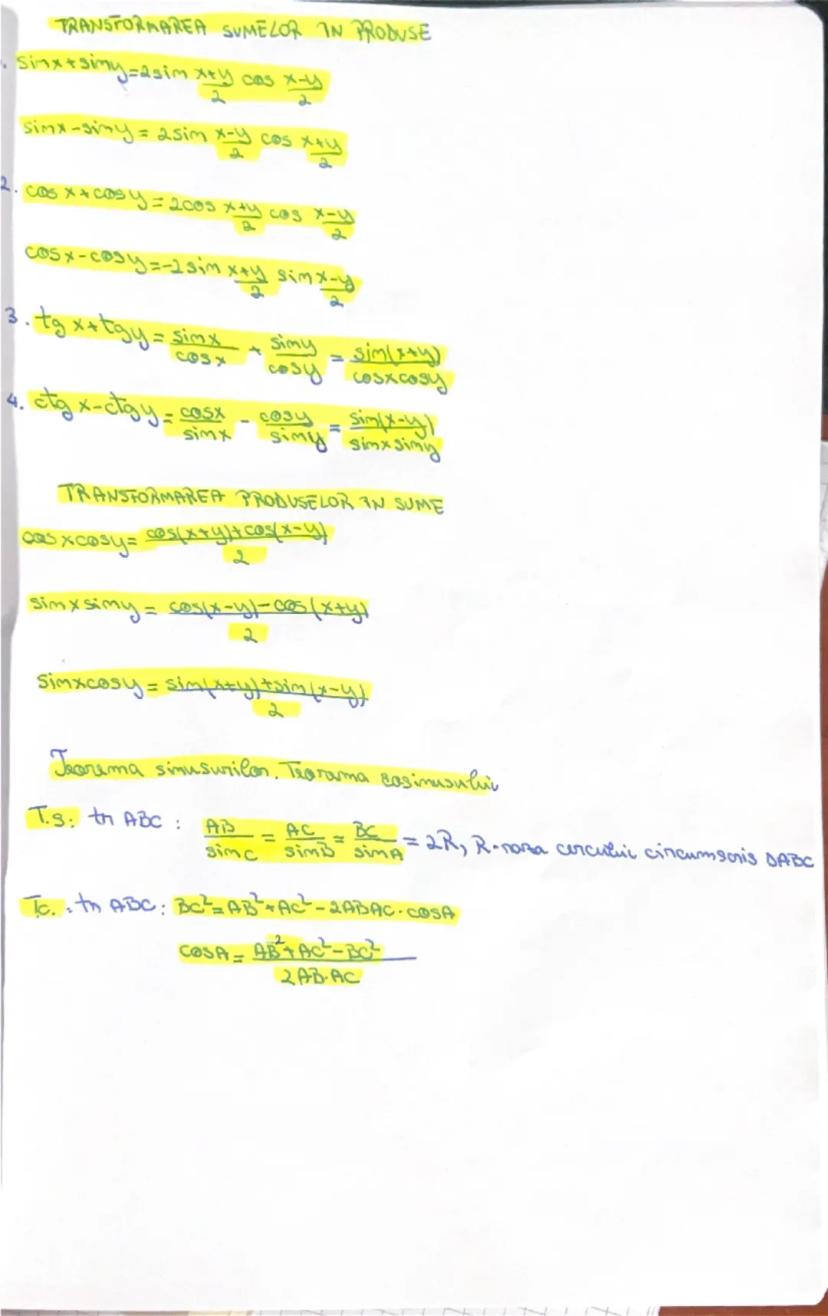 TRANSFORMAREA SUMELOR IN PRODUSE
1. sinx+siny=2sin x+y/2 cos x-y/2
sinx-siny = 2sin x-y/2 cos x+y/2
2. cos x+cosy=2cos x+y/2 cos x-y/2
cosx-cosy=-2sin x+y/2 sin x-y/2
3. tg x+tgy= sinx/cosx + siny/cosy = sin(x+y)/cosxcosy
4. ctg x-ctgy= cosx/sinx - cosy/siny = sin(x-y)/sinxsiny
TRANSFORMAREA PRODUSELOR IN SUME
cosxcosy= cos(x+y)+cos(x-y)/2
sinxsiny = cos(x-y)-cos(x+y)/2
sinxcosy= sin(x+y)+sin(x-y)/2
Teorema sinusurilor. Teorema cosinusului
T.S: în ABC : AB/sinC = AC/sinB = BC/sinA = 2R, R-raza cercului circumscris ΔABC
Tc.: în ABC: BC²=AB²+AC²-2ABAC·cosA
cosA= AB²+AC²-BC²/2AB·AC